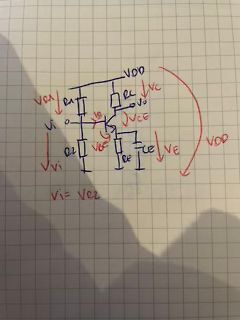 VDD
VR1 R1 RC VC
Vi Vo
VCE
R2 VBE RE CE VE VDD
Vi
Vi = VR2